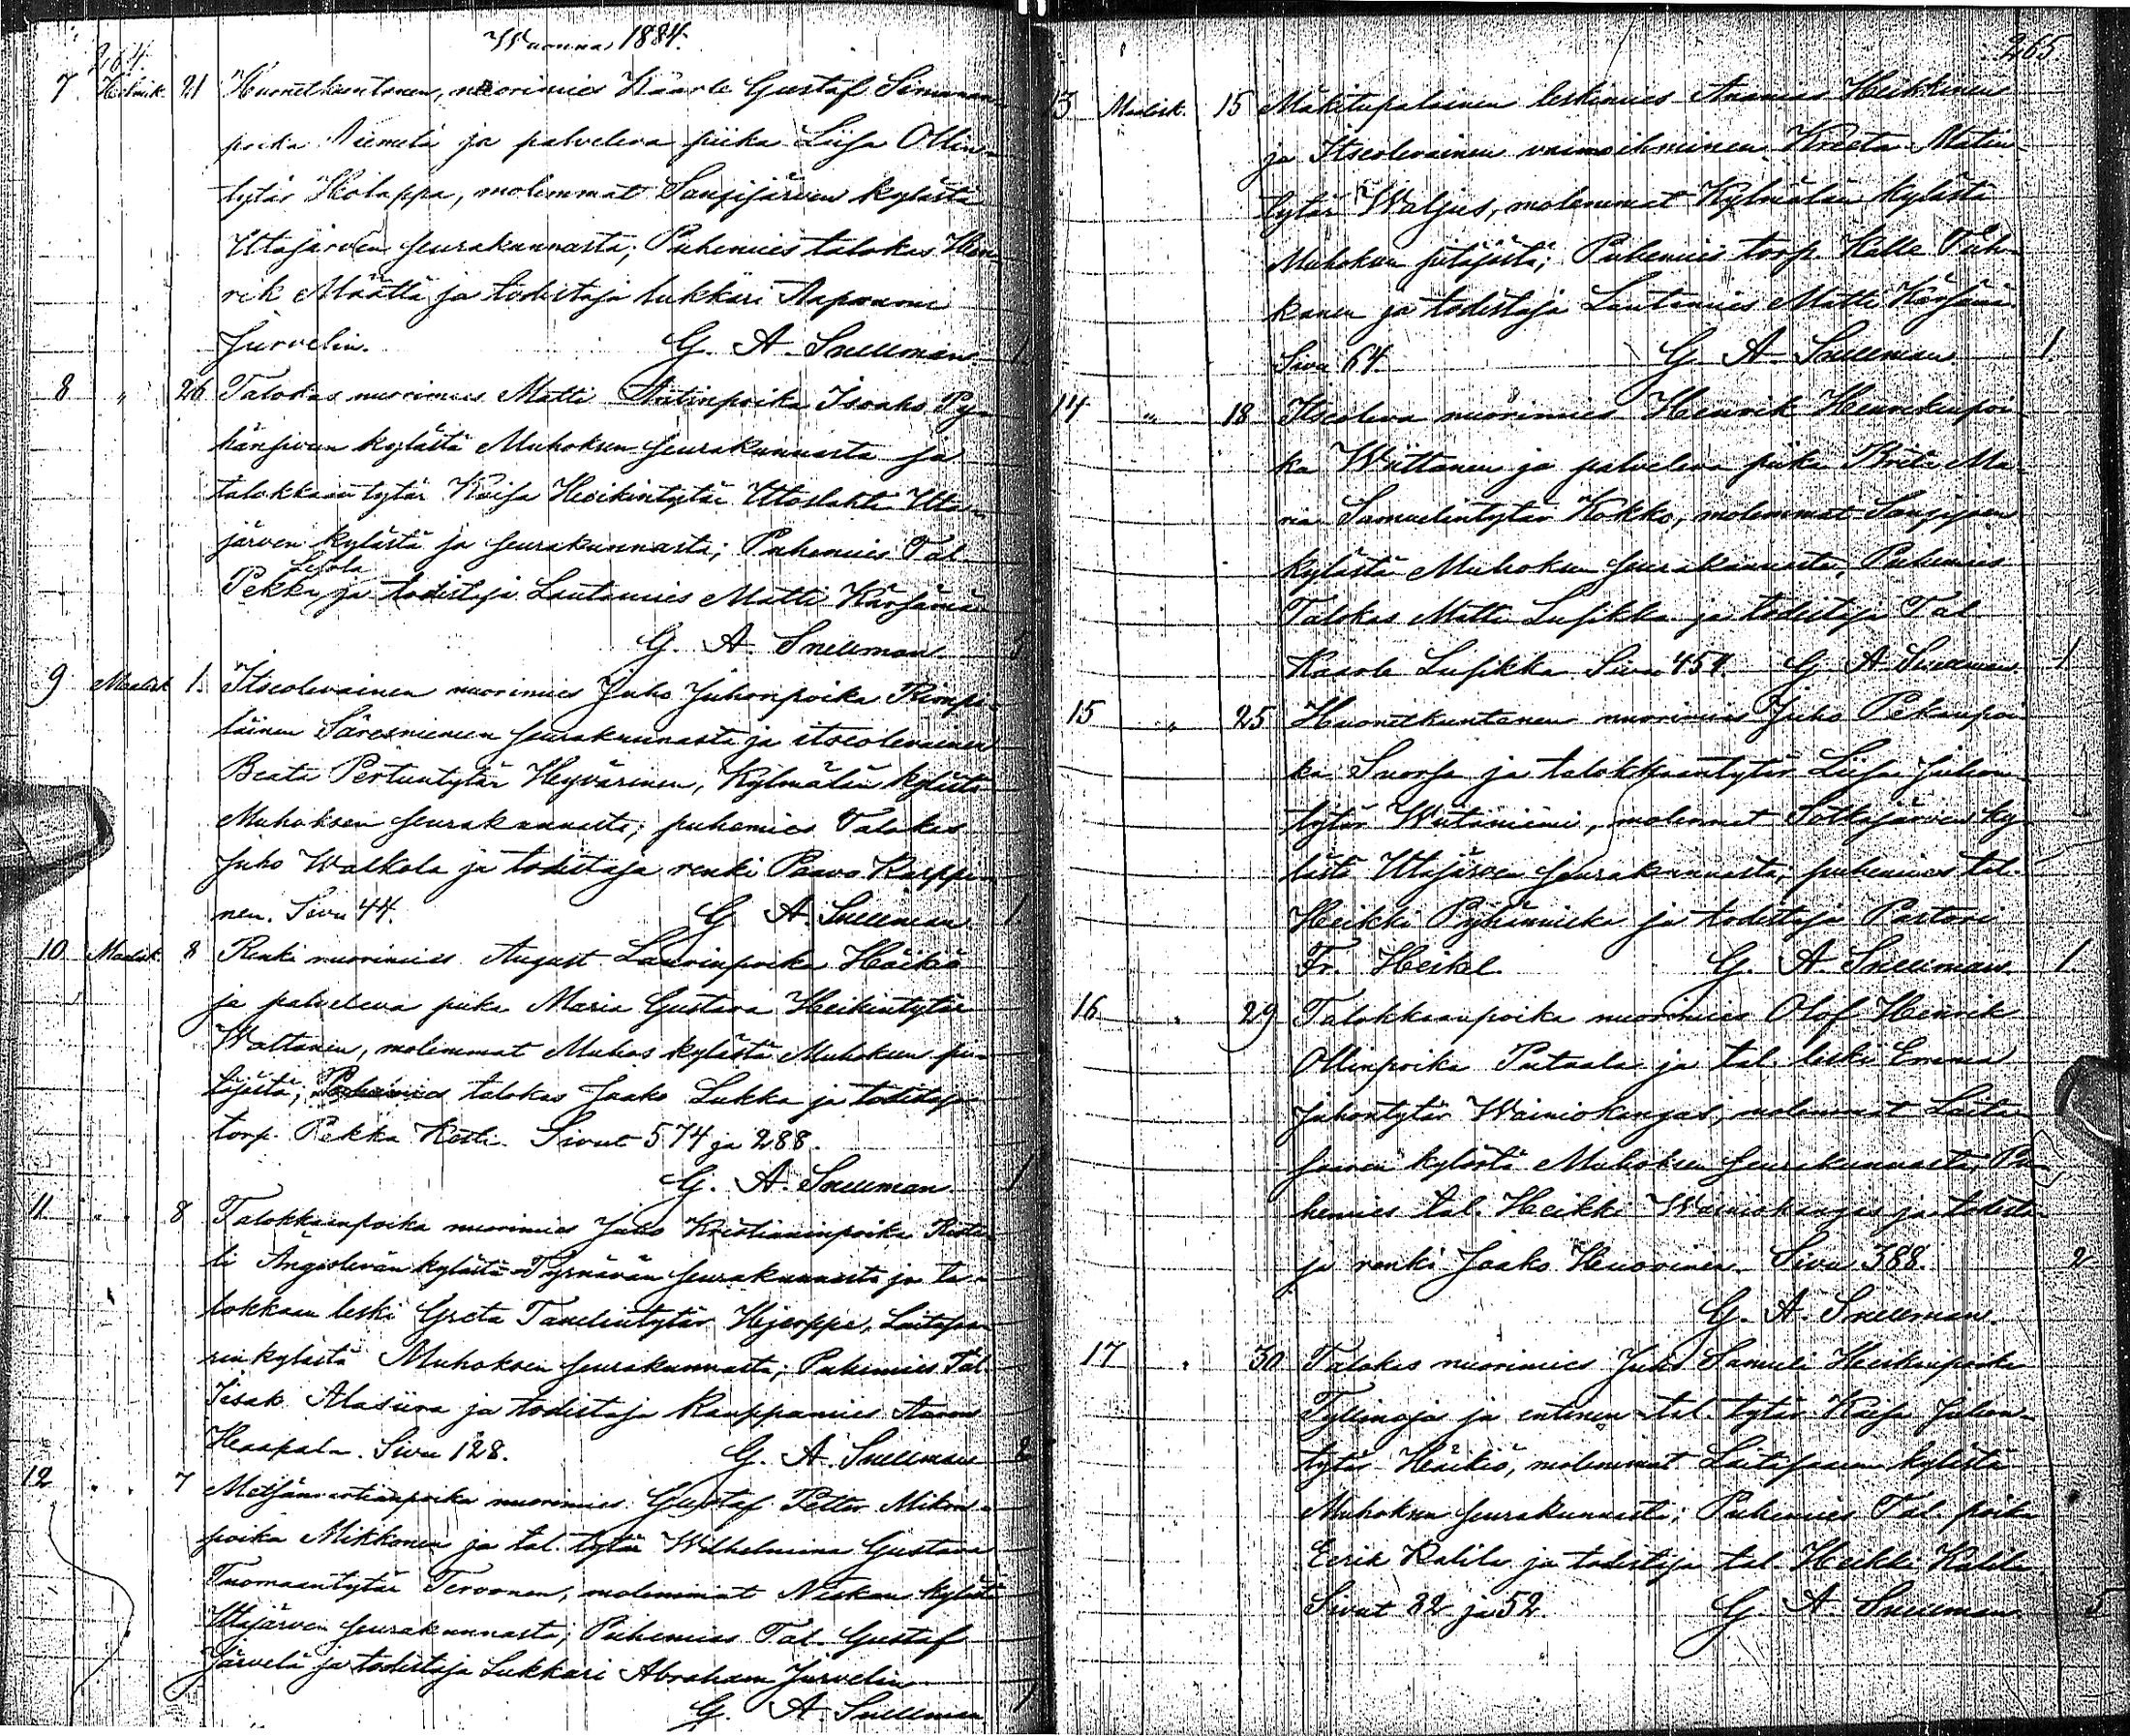 264.
Wuonna 1884.
7 Helmik. 21 Huonetkuntanen, nuorimies Kaarle Gustaf Simunan-
poika Niemelä ja palveleva piika Liisa Ollin-
tytär Holappa, molemmat Sangijärven kylästä
Utajärven seurakunnasta; Puhemies talokas Hen-
rik Määttä ja todistaja lukkari Aaprami
Jurvelin. G. A. Snellman 1
8 " 26 Talokas nuorimies Matti Antinpoika Isoaho Py-
hänsivun kylästä Muhoksen seurakunnasta ja
talokkaan tytär Kaisa Heikintytär Utoslahti Uta-
järven kylästä ja seurakunnasta; Puhemies Tal.
Pekka Leppla ja todistaja Lautamies Matti Kärsämä
G. A. Snellman. 5
9 Maalisk 1. Itseolevainen nuorimies Juho Juhonpoika Rimpi-
läinen Säresniemen seurakunnasta ja itseolevainen
Beata Pertuntytär Heyvärinen, Kylmälän kylästä
Muhoksen seurakunnasta; puhemies Talokas
Juho Walkola ja todistaja renki Paavo Karppi-
nen. Sivu 44. G. A. Snellman 1
10 Maalisk 8 Renki nuorimies August Laurinpoika Häikiö
ja palveleva piika Maria Gustava Heikintytär
Wattanen, molemmat Muhos kylästä Muhoksen pi-
täjästä; Puhemies talokas Jaako Lukka ja todistaja
torp. Pekka Kosti. Sivut 574 ja 288.
G. A. Snellman 1
11 " 8 Talokkaanpoika nuorimies Juho Kristianinpoika Riste-
li Ängislevän kylästä Tyrnävän seurakunnasta ja ta-
lokkaan leski Greta Tanelintytär Hyerppe, Laitasaa-
ren kylästä Muhoksen seurakunnasta; Puhemies Tal.
Iisak Alasiira ja todistaja Kauppamies Aaron
Haapala. Sivu 128. G. A. Snellman 2
12 7 Metsänvartianpoika nuorimies Gustaf Petter Mikon-
poika Mikkonen ja tal. tytär Wilhelmina Gustava
Tuomaantytär Tervonen, molemmat Niskan kylästä
Utajärven seurakunnasta; Puhemies Tal. Gustaf
Järvelä ja todistaja Lukkari Abraham Jurvelin
G. A. Snellman 1
265.
13 Maalisk. 15 Mäkitupalainen leskimies Ananias Heikkinen
ja Itseolevainen vaimoihminen Kreeta Matin-
tytär Waljus, molemmat Kylmälän kylästä
Muhoksen pitäjästä; Puhemies torp. Kalle Tuh-
kanen ja todistaja Lautamies Matti Kärsämä
Sivu 64. G. A. Snellman 1
14 " 18 Itseoleva nuorimies Henrik Henrikinpoi-
ka Wiittanen ja palveleva piika Brita Ma-
ria Samuelintytär Kokko, molemmat Sangijoen
kylästä Muhoksen seurakunnasta, Puhemies
Talokas Matti Lusikka ja todistaja Tal
Kaarle Lusikka Sivu 451. G. A. Snellman 1
15 " 25 Huonetkuntanen nuorimies Juho Pekanpoi-
ka Suorsa ja talokkaantytär Liisa Juhon-
tytär Wiitaniemi, molemmat Sotkajärven ky-
lästä Utajärven seurakunnasta, puhemies tal.
Heikki Pyhännieka ja todistaja Pastori
Fr. Heikel. G. A. Snellman. 1
16 " 29 Talokkaanpoika nuorimies Olof Henrik
Ollinpoika Pietaala ja tal. leski Emma
Juhontytär Wainiokangas, molemmat Laita-
saaren kylästä Muhoksen seurakunnasta, Pu-
hemies tal. Heikki Wainiokangas ja todista-
ja renki Jaako Huovinen. Sivu 388. 2
G. A. Snellman.
17 " 30 Talokas nuorimies Juho Samuli Heikinpoika
Tyllinoja ja entinen tal. tytär Kaisa Juhon-
tytär Häikiö, molemmat Laitasaaren kylästä
Muhoksen seurakunnasta; Puhemies Tal. poika
Eerik Kalila ja todistaja tal. Heikki Kalila
Sivut 32 ja 52. G. A. Snellman 5